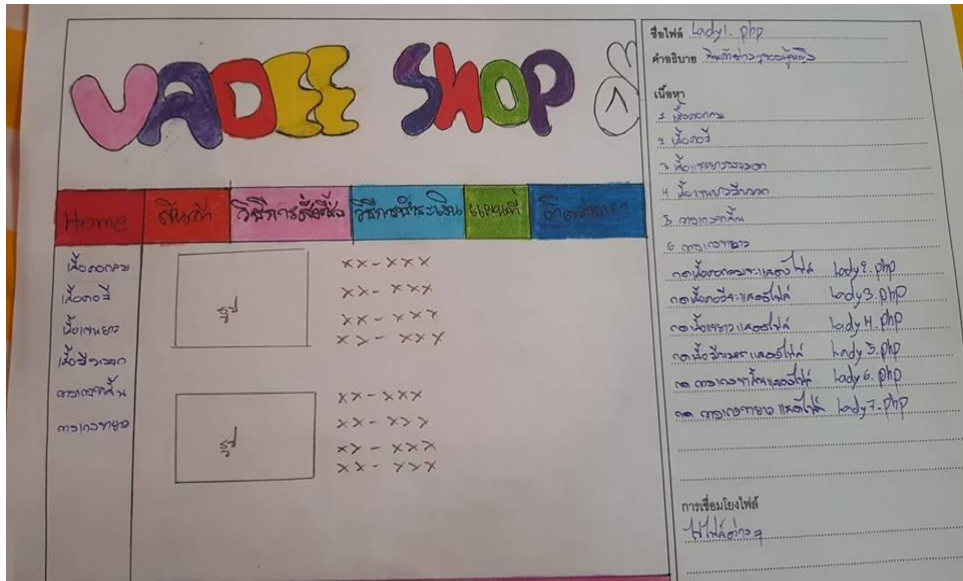 VADEE SHOP
Home สินค้า วิธีการสั่งซื้อ วิธีการชำระเงิน แผนที่ ติดต่อเรา
เสื้อคอกลม
เสื้อคอวี
เสื้อแขนยาว
เสื้อสีขาวดอก
กางเกงขาสั้น
กางเกงขายาว
รูป
xx-xxx
xx-xxx
xx-xxx
xx-xxx
รูป
xx-xxx
xx-xxx
xx-xxx
xx-xxx
ชื่อไฟล์ Lady1.php
คำอธิบาย
เนื้อหา
1 เสื้อคอกลม
2 เสื้อคอวี
3
4
5 กางเกงขาสั้น
6 กางเกงขายาว
กดเสื้อคอกลมจะแสดงไฟล์ Lady2.php
กดเสื้อคอวีจะแสดงไฟล์ Lady3.php
กดเสื้อแขนยาวแสดงไฟล์ Lady4.php
แสดงไฟล์ Lady5.php
กด กางเกงขาสั้นแสดงไฟล์ Lady6.php
กด กางเกงขายาว แสดงไฟล์ Lady7.php
การเชื่อมโยงไฟล์
ไปไฟล์ต่าง ๆ